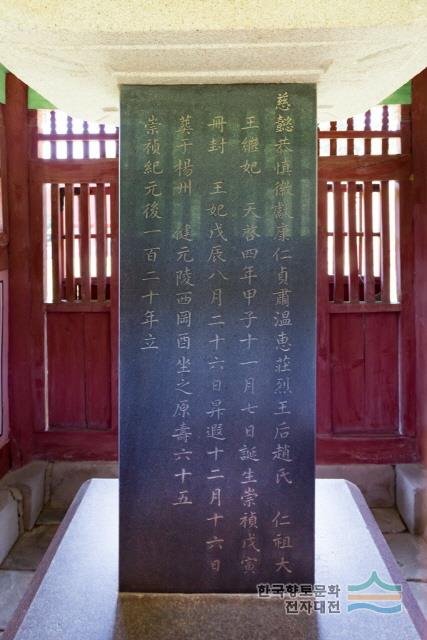 慈懿恭愼徽獻康仁貞肅溫惠莊烈王后趙氏 仁祖大
王繼妃 天啓四年甲子十一月七日誕生崇禎戊寅
冊封 王妃戊辰八月二十六日昇遐十二月十六日
葬于楊州 健元陵西岡酉坐之原壽六十五
崇禎紀元後一百二十年立
한국향토문화
전자대전